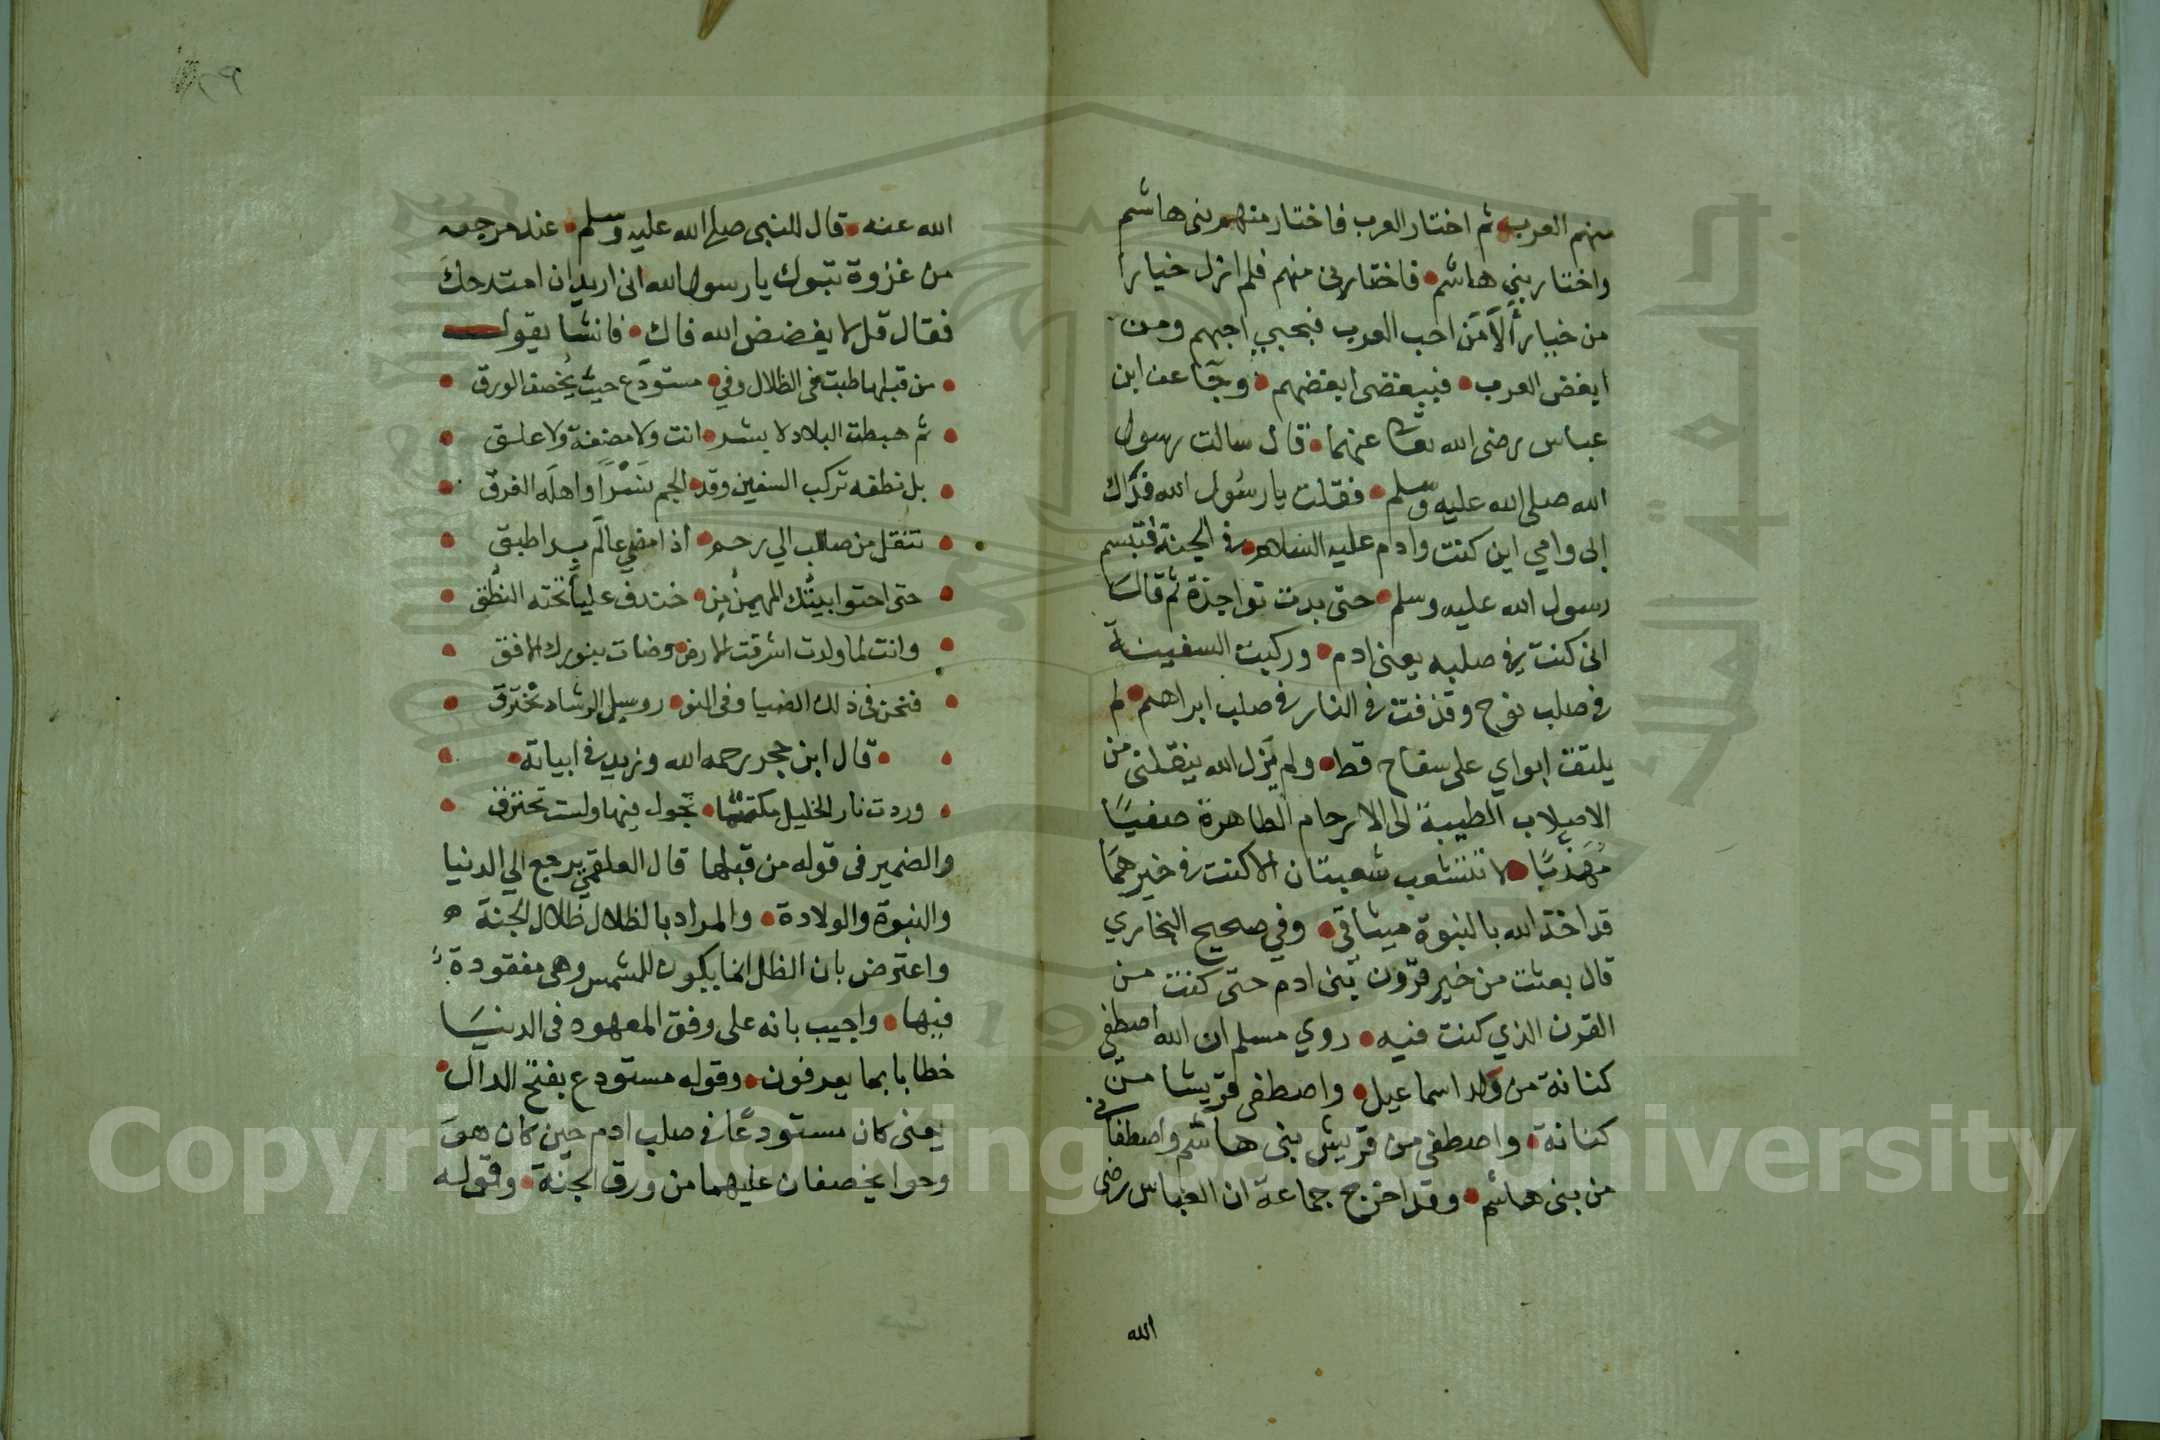 منهم العرب ثم اختار العرب فاختار منهم بنى هاشم
واختار بني هاشم فاختارنى منهم فلم ازل خيارا
من خيار ألا من احب العرب فبحبي احبهم ومن
ابغض العرب فببغضى ابغضهم وجآ عن ابن
عباس رضى الله تعا عنهما قال سالت رسول
الله صلى الله عليه وسلم فقلت يا رسول الله فداك
ابى وامي اين كنت وادم عليه السلام في الجنة فتبسم
رسول الله عليه وسلم حتى بدت نواجذة ثم قال
انى كنت في صلبه يعنى ادم وركبت السفينة
في صلب نوح وقذفت في النار في صلب ابراهم لم
يلتقت ابواي على سفاح قط ولم يزل الله ينقلنى من
الاصلاب الطيبة الى الارحام الطاهرة صفيًا
مهذبًا لا تتشعب شعبتان الا كنت في خيرهما
قد اخذ الله بالنبوة ميثاقي وفي صحيح البخاري
قال بعثت من خير قرون بنى ادم حتى كنت من
القرن الذي كنت فيه روي مسلم ان الله اصطفى
كنانة من ولد اسماعيل واصطفى قريشا من
كنانة واصطفى من قريش بنى هاشم واصطفانى
من بنى هاشم وقد اخرج جماعة ان العباس رضى
الله
الله عنه قال للنبى صلى الله عليه وسلم عند مرجعه
من غزوة تبوك يا رسول الله انى اريد ان امتدحك
فقال قل لا يفضض الله فاك فانشا يقول
من قبلها طبت فى الظلال وفي مستودع حيث يخصف الورق
ثم هبطت البلاد لا بشر انت ولا مضغة ولا علق
بل نطفه تركب السفين وقد الجم نسرًا واهله الغرق
تنقل من صالب الي رحم اذا مضي عالم بدا طبق
حتى احتوا بيتك المهيمن من خندف عليا تحته النطق
وانت لما ولدت اشرقت الارض وضات بنورك الافق
فنحن فى ذلك الضيا وفى النو ر وسبل الرشاد نخترق
قال ابن حجر رحمه الله وزيد في ابياته
وردت نار الخليل مكتتما تجول فيها ولست تحترق
والضمير فى قوله من قبلها قال العلقمي يرجع الي الدنيا
والنبوة والولادة والمراد بالظلال ظلال الجنة
واعترض بان الظل انما يكون للشمس وهى مفقودة
فيها واجيب بانه على وفق المعهود فى الدنيا
خطابا بما يعرفون وقوله مستودع بفتح الدال
يعنى كان مستودعًا في صلب ادم حين كان هو
وحوا يخصفان عليهما من ورق الجنة وقوله
Copyright © King Saud University